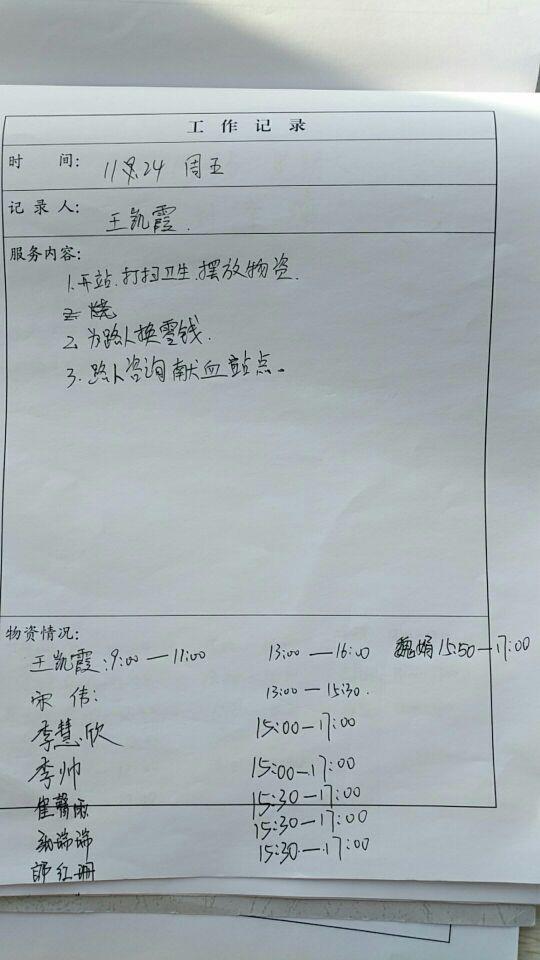 工作记录
时 间: 11.24 周五
记录人: 王凯霞.
服务内容:
1.开站.打扫卫生.摆放物资.
2.为路人换零钱.
3.路人咨询献血站点。
物资情况:
王凯霞:9:00—11:00 13:00—16:00 魏娟 15:50—17:00
宋伟: 13:00—15:30.
李慧欣 15:00—17:00
李帅 15:00—17:00
崔 15:30—17:00
瑞瑞 15:30—17:00
师红珊 15:30—17:00